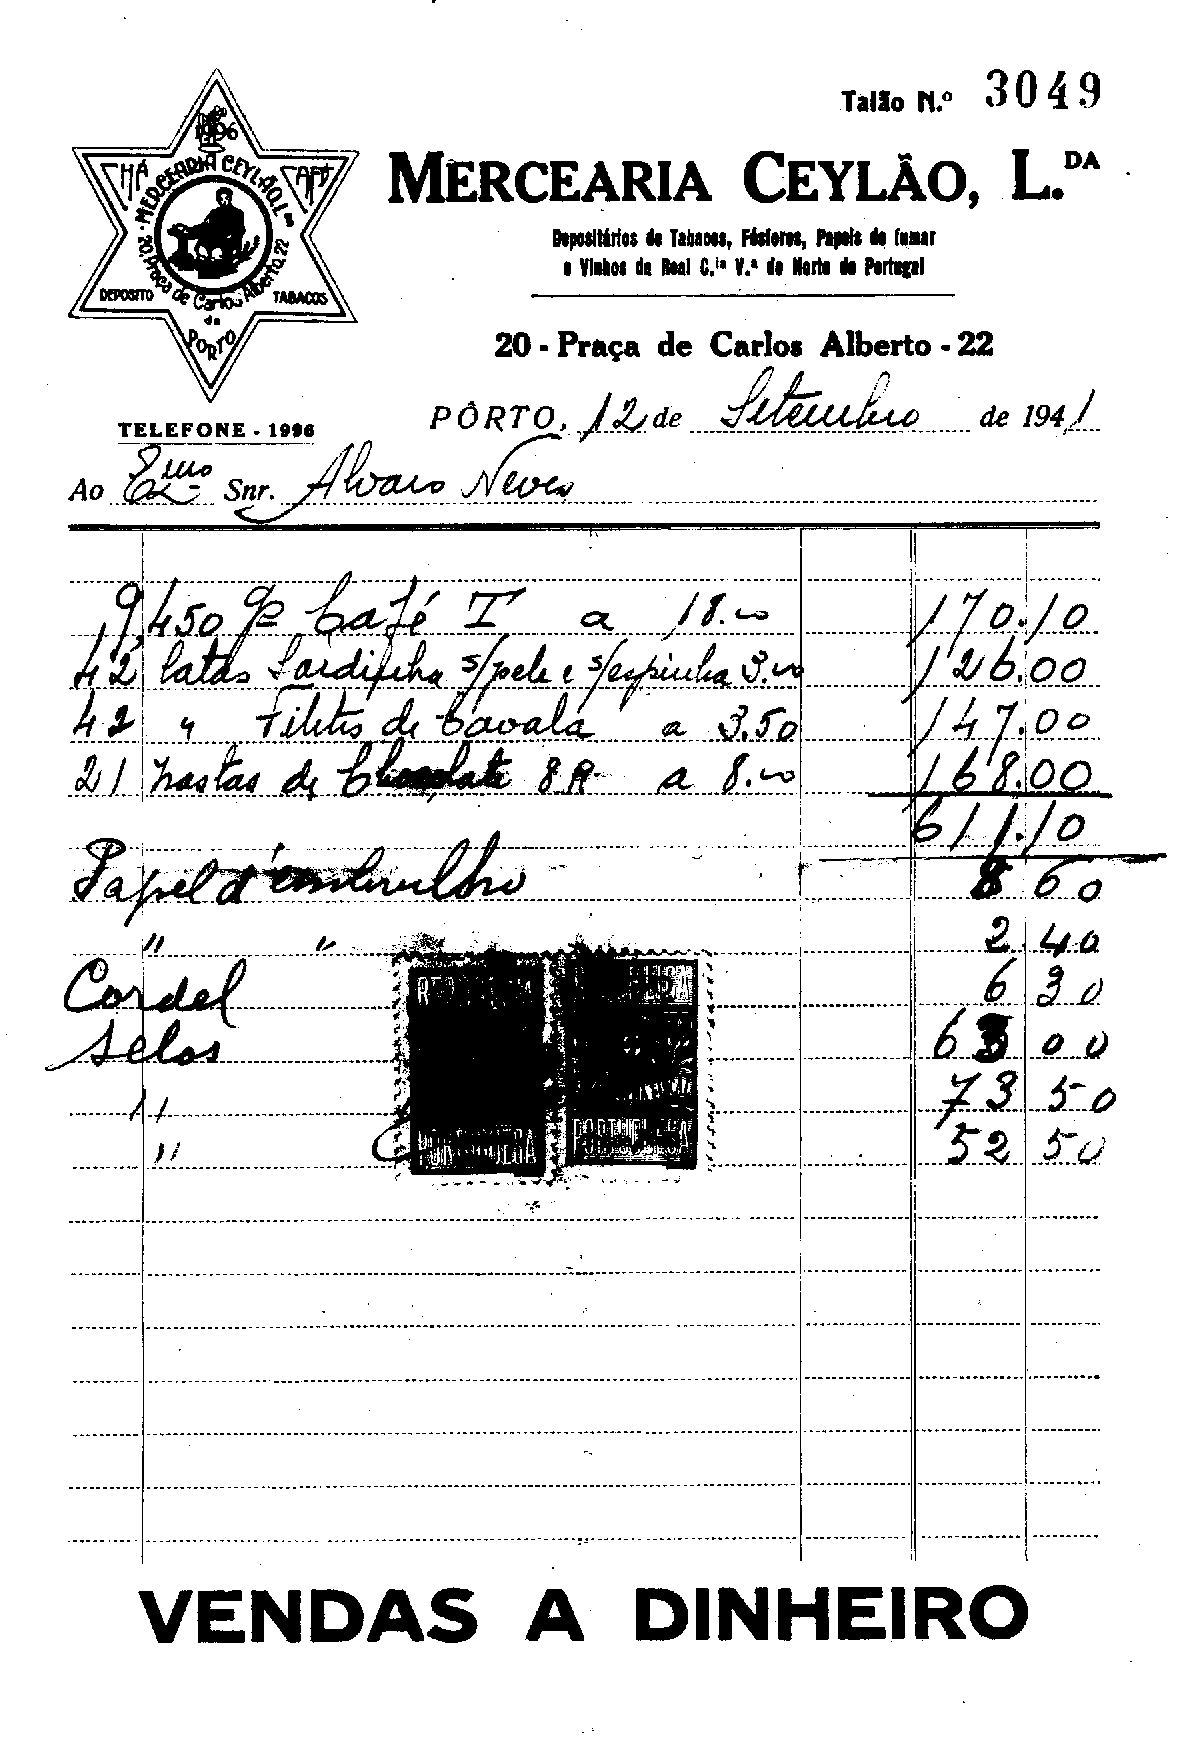 Talão N.º 3049
1996
CHÁ
CAFÉ
MERCEARIA CEYLÃO, L.da
20, Praça de Carlos Alberto, 22
DEPOSITO
de
TABACOS
PORTO
MERCEARIA CEYLÃO, L.DA
Depositários de Tabacos, Fósforos, Papeis de fumar
e Vinhos da Real C.ia V.a do Norte de Portugal
20 - Praça de Carlos Alberto - 22
TELEFONE - 1996
PÔRTO, 12 de Setembro de 1941
Ao Exmo Snr. Alvaro Neves
9,450 gs Café I a 18.00 170.10
42 latas Sardinha s/pele e s/espinha 3.00 126.00
42 " Filetes de Cavala a 3.50 147.00
21 pastas de Chocolate a 8.00 168.00
611.10
Papel d'embrulho 8 60
" " 2.40
Cordel 6 30
Selos 63 00
" 73 50
" 52 50
PORTUGUESA
VENDAS A DINHEIRO